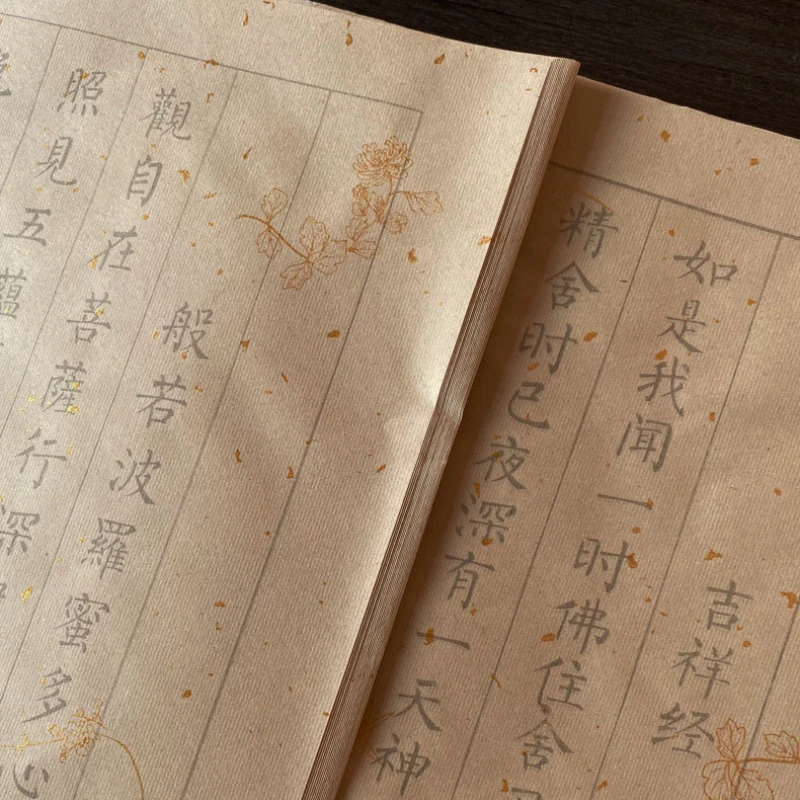 吉祥经
如是我闻一时佛住舍
精舍时已夜深有一天神
般若波羅蜜多心
觀自在菩薩行深
照見五蘊